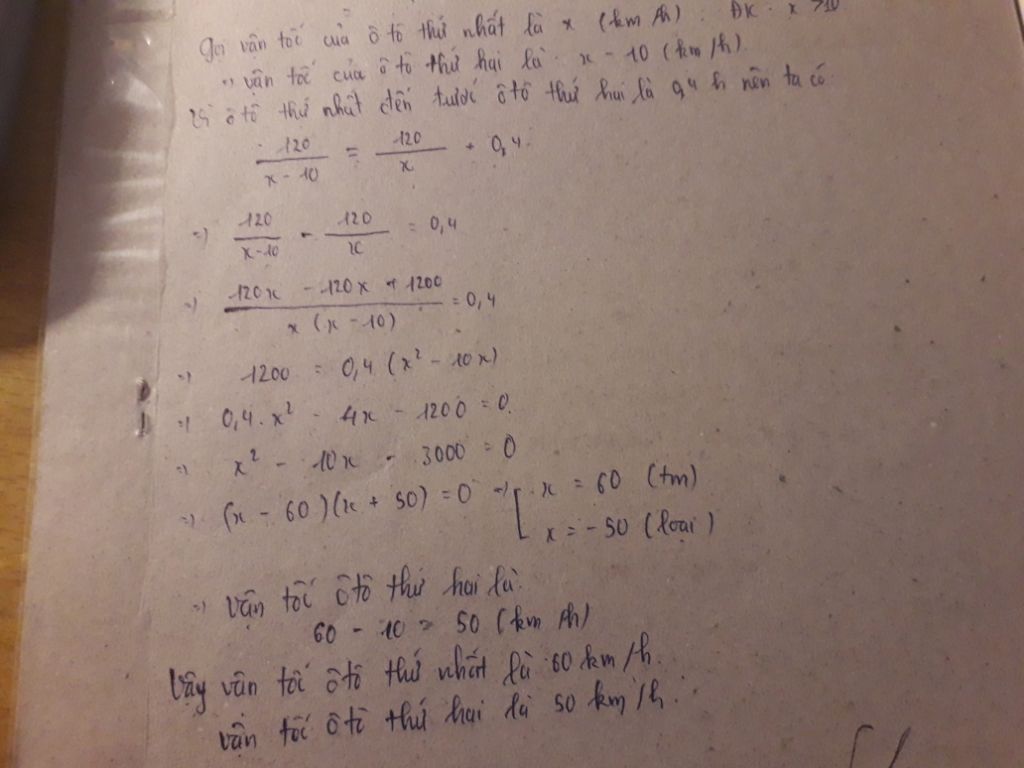 Gọi vận tốc của ô tô thứ nhất là x (km/h). ĐK: x > 10
" vận tốc của ô tô thứ hai là x - 10 (km/h).
Vì ô tô thứ nhất đến tước ô tô thứ hai là 0,4 h nên ta có
120/(x - 10) = 120/x + 0,4.
=) 120/(x-10) - 120/x = 0,4
=) (120x - 120x + 1200)/(x (x - 10)) = 0,4
=) 1200 = 0,4 (x² - 10x)
=) 0,4.x² - 4x - 1200 = 0.
=) x² - 10x - 3000 = 0
=) (x - 60)(x + 50) = 0 =) [ x = 60 (tm)
x = -50 (loại)
=) vận tốc ô tô thứ hai là.
60 - 10 = 50 (km/h)
Vậy vân tốc ô tô thứ nhất là 60 km/h.
vận tốc ô tô thứ hai là 50 km/h.